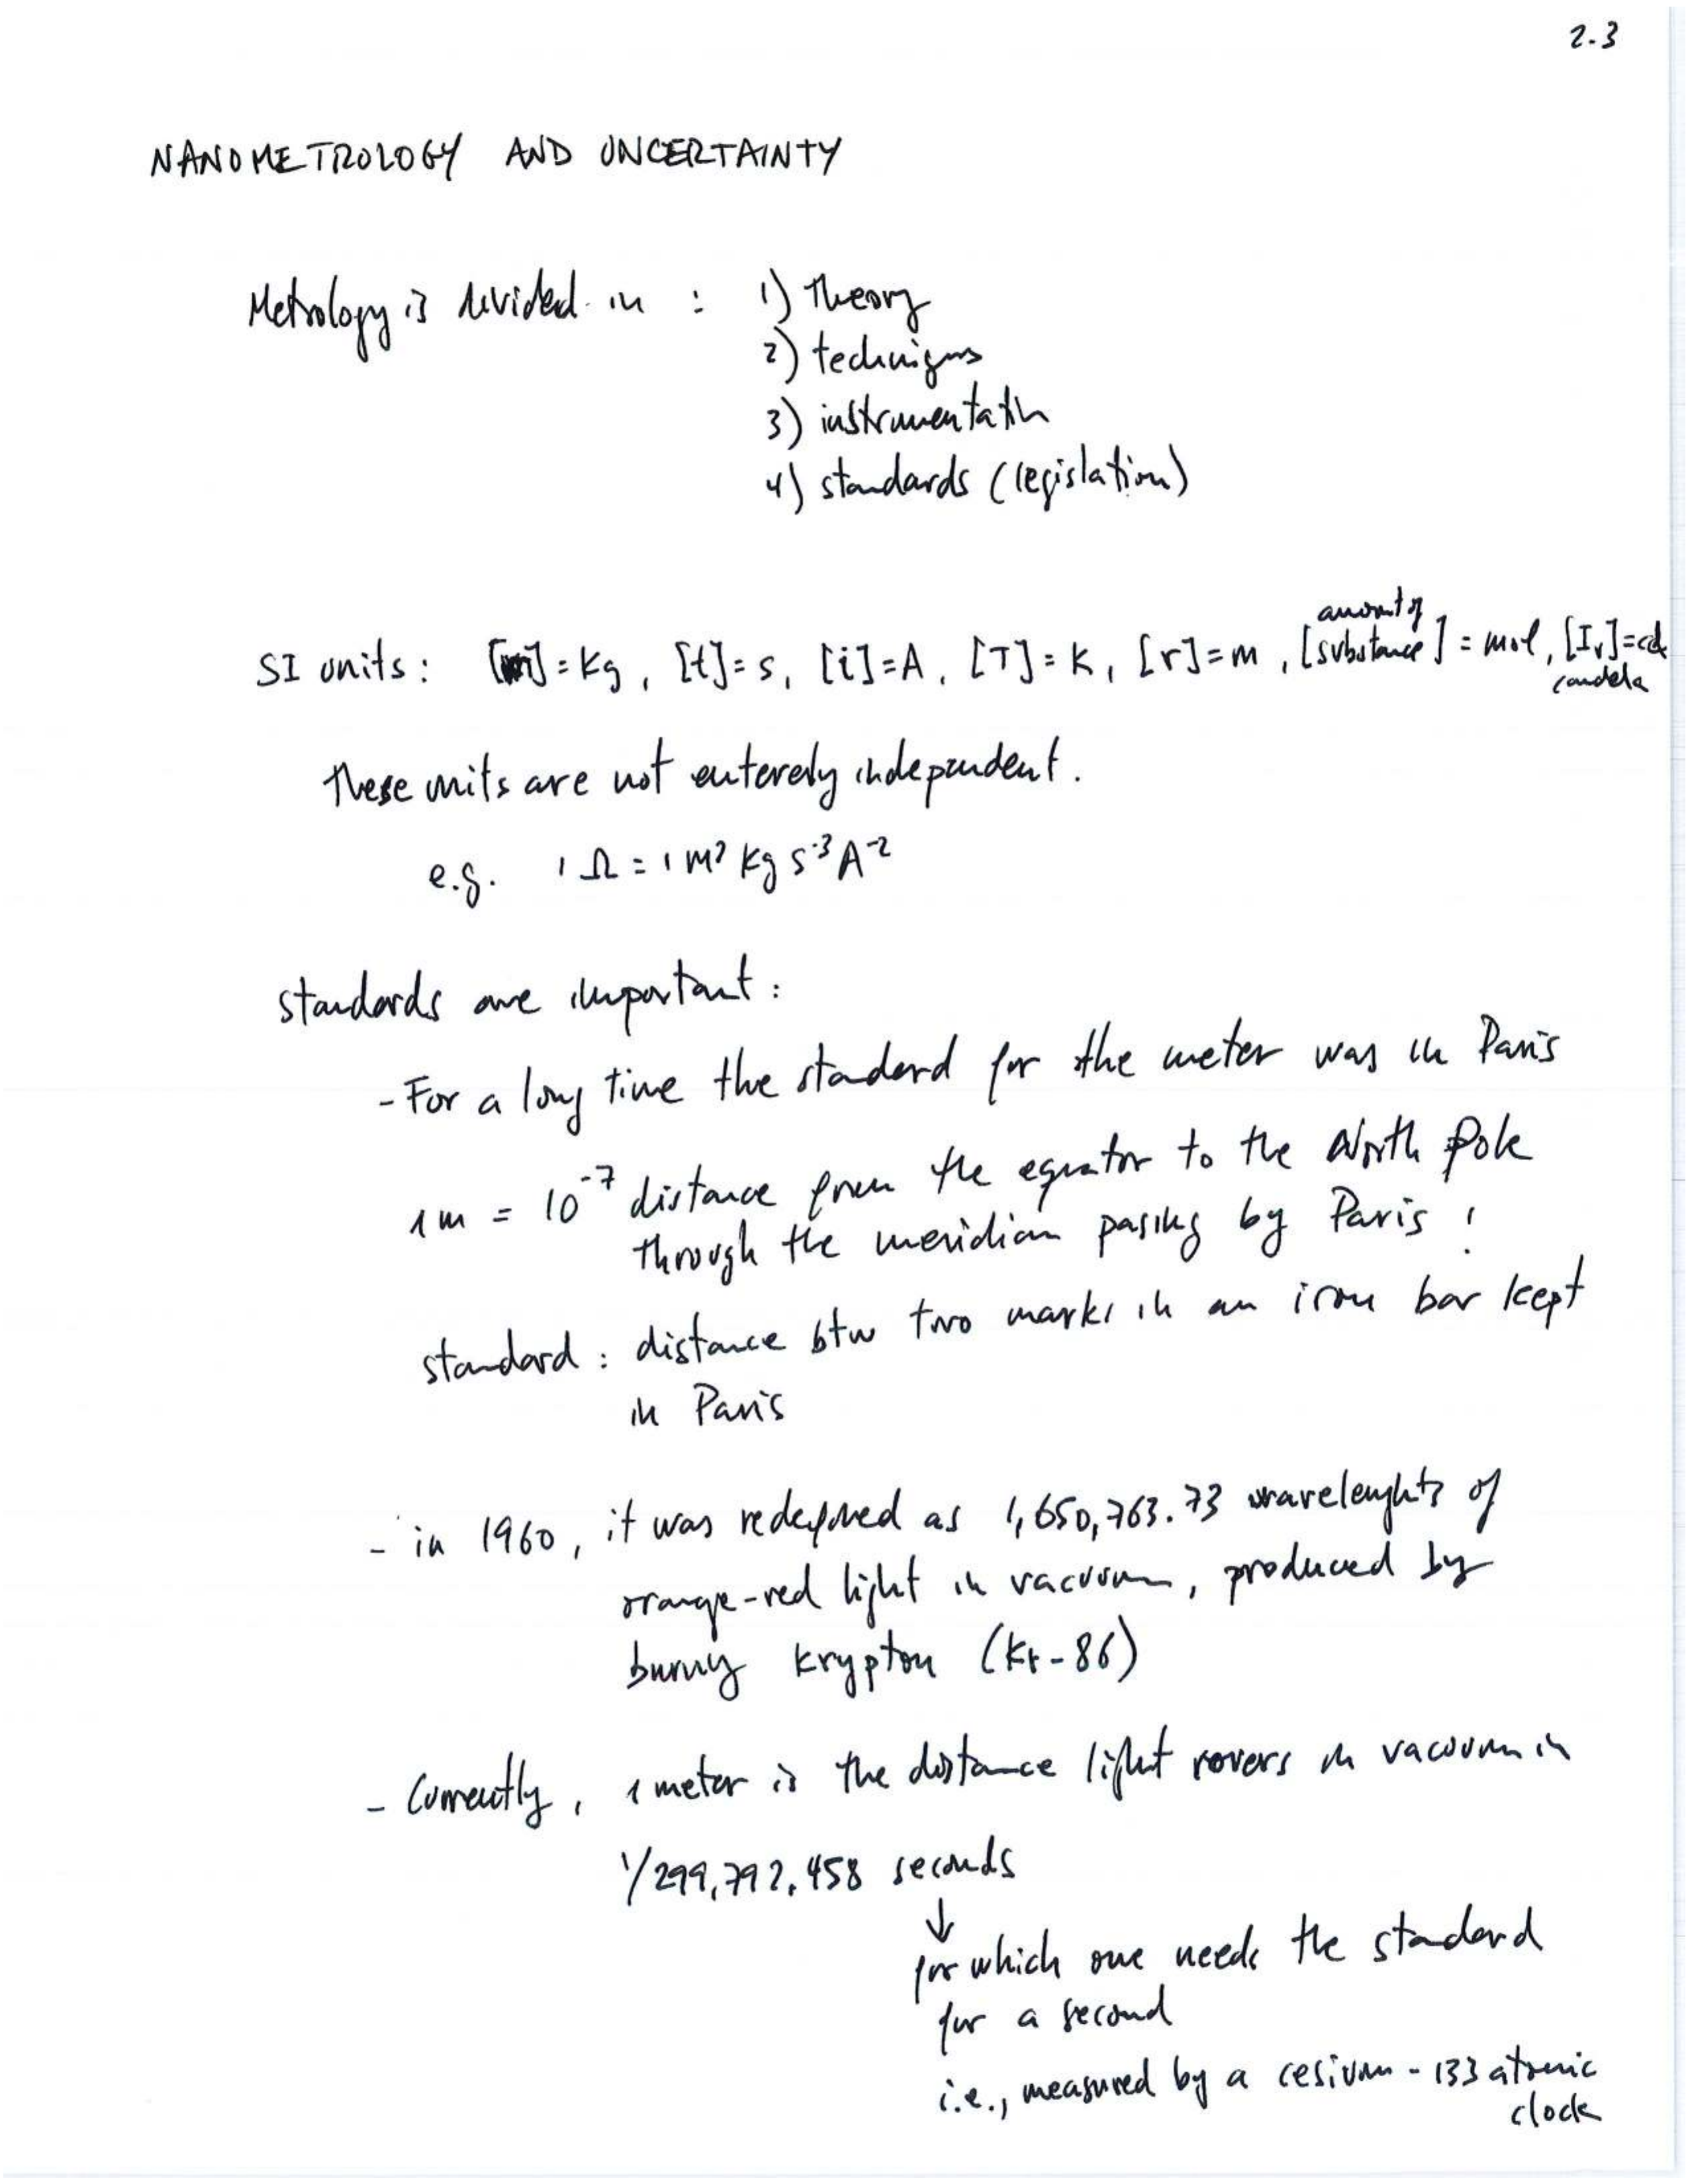 2.3
NANOMETROLOGY AND UNCERTAINTY
Metrology is divided in : 1) Theory
2) techniques
3) instrumentation
4) standards (legislation)
amount of
SI units: [m]=Kg, [t]=s, [i]=A, [T]=K, [r]=m, [substance]=mol, [Iv]=cd
candela
These units are not enterely independent.
e.g. 1 Ω = 1 m² Kg s⁻³ A⁻²
standards are important:
- For a long time the standard for the meter was in Paris
1 m = 10⁻⁷ distance from the equator to the North Pole
through the meridian pasing by Paris !
standard : distance btw two marks in an iron bar kept
in Paris
- in 1960, it was redefined as 1,650,763.73 wavelenghts of
orange-red light in vacuum, produced by
burning krypton (Kr-86)
- Currently, 1 meter is the distance light covers in vacuum in
1/299,792,458 seconds
↓
for which one needs the standard
for a second
i.e., measured by a cesium - 133 atomic
clock